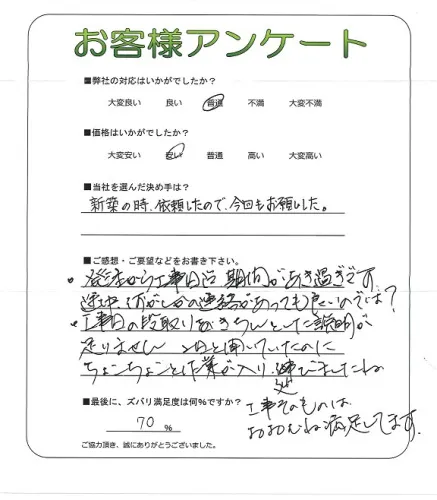 お客様アンケート
■弊社の対応はいかがでしたか？
大変良い 良い 普通 不満 大変不満
■価格はいかがでしたか？
大変安い 安い 普通 高い 大変高い
■当社を選んだ決め手は？
新築の時、依頼したので、今回もお願いした。
■ご感想・ご要望などをお書き下さい。
・発注から工事日迄 期間があき過ぎです
途中 何がしかの連絡があっても良いのでは？
・工事日の段取りをきちんとした説明が
足りません 日と聞いていたのに
ちょこちょこと作業が入り 延びましたね
■最後に、ズバリ満足度は何%ですか？
70 %
工事そのものは
おおむね満足してます。
ご協力頂き、誠にありがとうございました。